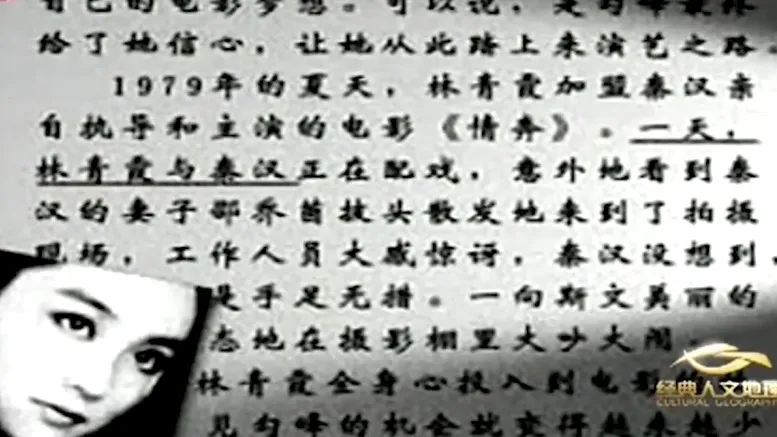 自己的电影梦想。可以说，是勾峰最终
给了她信心，让她从此踏上来演艺之路。
1979年的夏天，林青霞加盟秦汉亲
自执导和主演的电影《情奔》。一天，
林青霞与秦汉正在配戏，意外地看到秦
汉的妻子邵乔茵披头散发地来到了拍摄
现场，工作人员大感惊讶，秦汉没想到，
是手足无措。一向斯文美丽的
态地在摄影棚里大吵大闹。
林青霞全身心投入到电影
见勾峰的机会就变得越来越少
经典人文地理
CULTURAL GEOGRAPHY